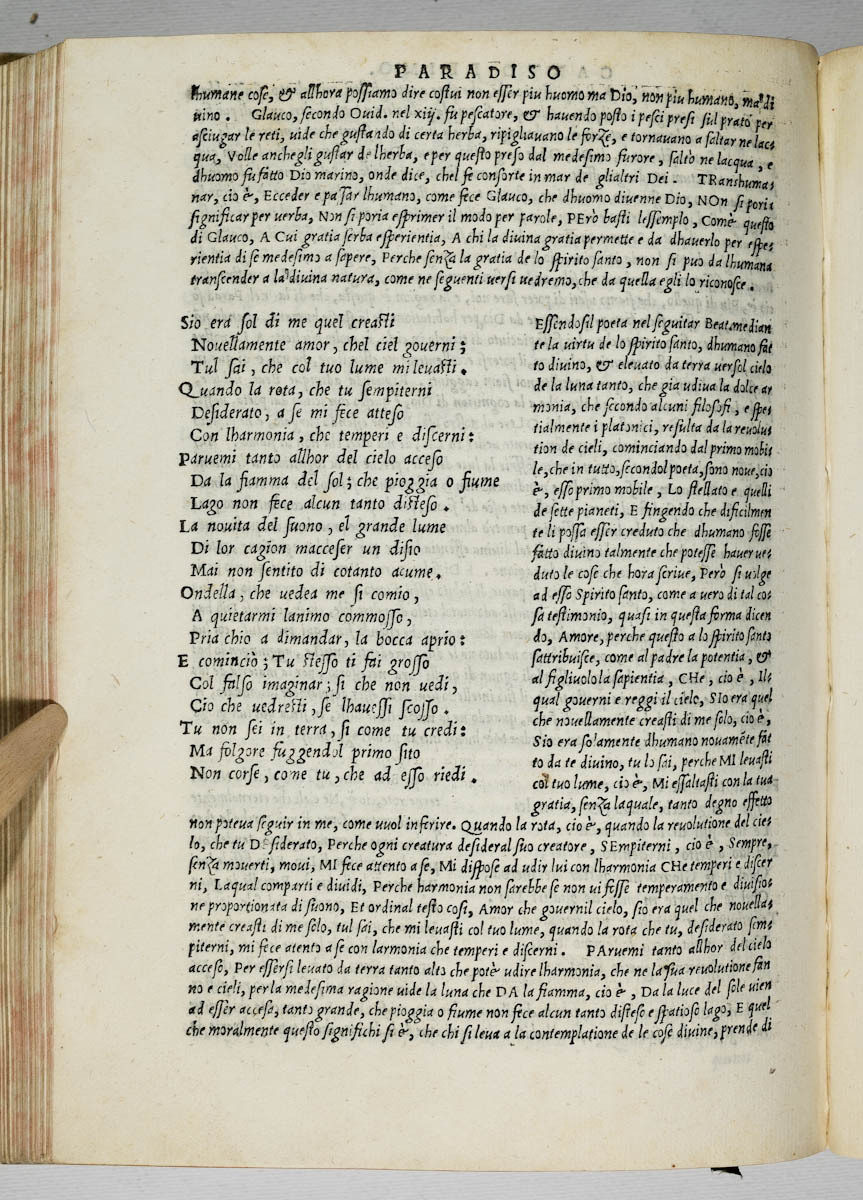 PARADISO
humane cose, & allhora possiamo dire costui non esser piu huomo ma Dio, non piu humano, ma di
uino. Glauco, secondo Ouid. nel xiij. fu pescatore, & hauendo posto i pesci presi sul prato per
asciugar le reti, uide che gustando di certa herba, ripigliauano le forze, e tornauano a saltar ne lac⸗
qua, Volle anchegli gustar de lherba, e per questo preso dal medesimo furore, saltò ne lacqua, e
dhuomo fu fatto Dio marino, onde dice, chel fe consorte in mar de glialtri Dei. TRanshuma⸗
nar, cio è, Ecceder e passar lhumano, come fece Glauco, che dhuomo diuenne Dio, NOn si poria
significar per uerba, Non si poria esprimer il modo per parole, PErò basti lessemplo, Comè questo
di Glauco, A Cui gratia serba esperientia, A chi la diuina gratia permette e da dhauerlo per espe⸗
rientia di se medesimo a sapere, Perche senza la gratia de lo spirito santo, non si puo da lhumana
transcender a la diuina natura, come ne seguenti uersi uedremo, che da quella egli lo riconosce.
Sio era sol di me quel creasti
Nouellamente amor, chel ciel gouerni;
Tul sai, che col tuo lume mi leuasti.
Quando la rota, che tu sempiterni
Desiderato, a se mi fece atteso
Con lharmonia, che temperi e discerni:
Paruemi tanto allhor del cielo acceso
Da la fiamma del sol; che pioggia o fiume
Lago non fece alcun tanto disteso.
La nouita del suono, el grande lume
Di lor cagion macceser un disio
Mai non sentito di cotanto acume.
Ondella, che uedea me si comio,
A quietarmi lanimo commosso,
Pria chio a dimandar, la bocca aprio:
E cominciò; Tu stesso ti fai grosso
Col falso imaginar; si che non uedi,
Cio che uedresti, se lhauessi scosso.
Tu non sei in terra, si come tu credi:
Ma folgore fuggendol primo sito
Non corse, come tu, che ad esso riedi.
Essendosil poeta nel seguitar Beat. median
te la uirtu de lo spirito santo, dhumano fat
to diuino, & eleuato da terra uersol cielo
de la luna tanto, che gia udiua la dolce ar
monia, che secondo alcuni filosofi, e spe⸗
tialmente i platonici, resulta da la reuolu⸗
tion de cieli, cominciando dal primo mobi⸗
le, che in tutto, secondol poeta, sono noue, cio
è, esso primo mobile, Lo stellato e quelli
de sette pianeti, E fingendo che dificilmen
te li possa esser creduto che dhumano fosse
fatto diuino talmente che potesse hauer ue⸗
duto le cose che hora scriue, Però si uolge
ad esso Spirito santo, come a uero di tal co⸗
sa testimonio, quasi in questa forma dicen
do, Amore, perche questo a lo spirito santo
sattribuisce, come al padre la potentia, &
al figliuolo la sapientia, CHe, cio è, Il⸗
qual gouerni e reggi il cielo, SIo era quel
che nouellamente creasti di me solo, cio è,
Sio era solamente dhumano nouamẽte fat
to da te diuino, tu lo sai, perche MI leuasti
col tuo lume, cio è, Mi essaltasti con la tua
gratia, senza laquale, tanto degno effetto
non poteua seguir in me, come uuol inferire. Quando la rota, cio è, quando la reuolutione del cie⸗
lo, che tu DEsiderato, Perche ogni creatura desideral suo creatore, SEmpiterni, cio è, Sempre,
senza mouerti, moui, MI fece attento a se, Mi dispose ad udir lui con lharmonia CHe temperi e discer
ni, Laqual comparti e diuidi, Perche harmonia non sarebbe se non ui fosse temperamento e diuisio⸗
ne proportionata di suono, Et ordinal testo cosi, Amor che gouernil cielo, sio era quel che nouella⸗
mente creasti di me solo, tul sai, che mi leuasti col tuo lume, quando la rota che tu, desiderato sem⸗
piterni, mi fece atento a se con larmonia che temperi e discerni. PAruemi tanto allhor del cielo
acceso, Per essersi leuato da terra tanto alto che potè udire lharmonia, che ne la sua reuolutione fan
no e cieli, per la medesima ragione uide la luna che DA la fiamma, cio è, Da la luce del sole uien
ad esser accesa, tanto grande, che pioggia o fiume non fece alcun tanto disteso e spatioso lago, E quel
che moralmente questo significhi si è, che chi si leua a la contemplatione de le cose diuine, prende di